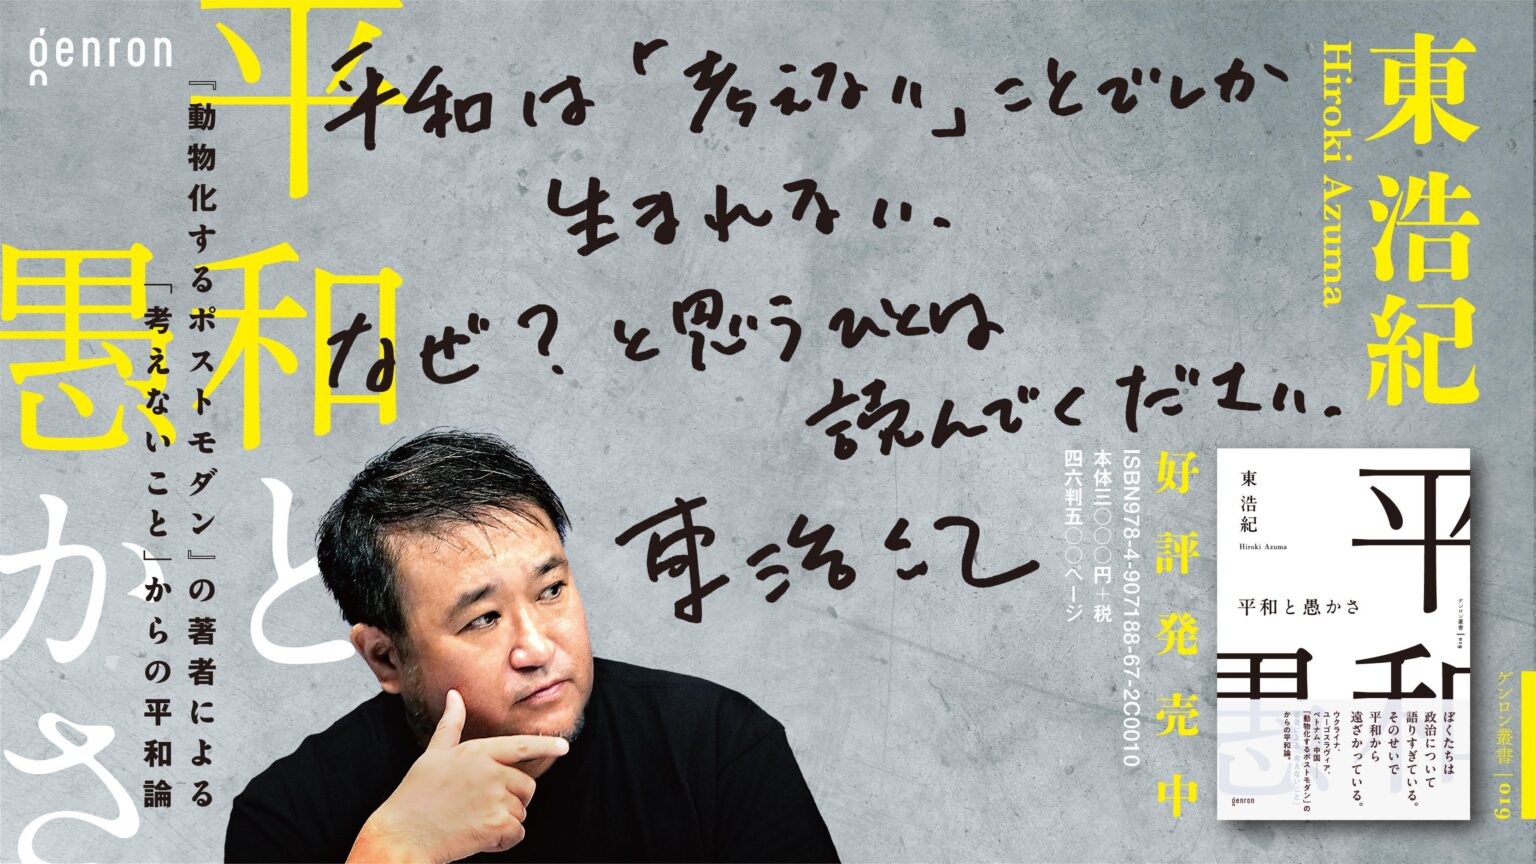 genron
平和と
愚かさ
『動物化するポストモダン』の著者による
「考えないこと」からの平和論
平和は「考えない」ことでしか
生まれない.
なぜ？と思うひとは
読んでください.
東浩紀
東浩紀
Hiroki Azuma
好評発売中
ISBN978-4-907188-67-2C0010
本体三〇〇〇円＋税
四六判五〇〇ページ
東浩紀
Hiroki Azuma
平和と愚かさ
平和
愚
ゲンロン叢書|019
ぼくたちは
政治について
語りすぎている。
そのせいで
平和から
遠ざかっている。
ウクライナ、
ユーゴスラヴィア、
ベトナム、中国……
『動物化するポストモダン』の
著者による「考えないこと」
からの平和論。
genron
ゲンロン叢書|019